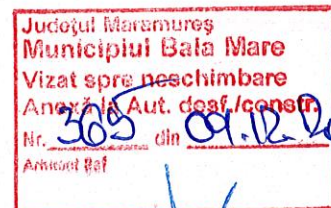 Județul Maramureș
Municipiul Baia Mare
Vizat spre neschimbare
Anexă la Aut. desf./constr.
Nr. 365 din 09.12.
Arhitect șef